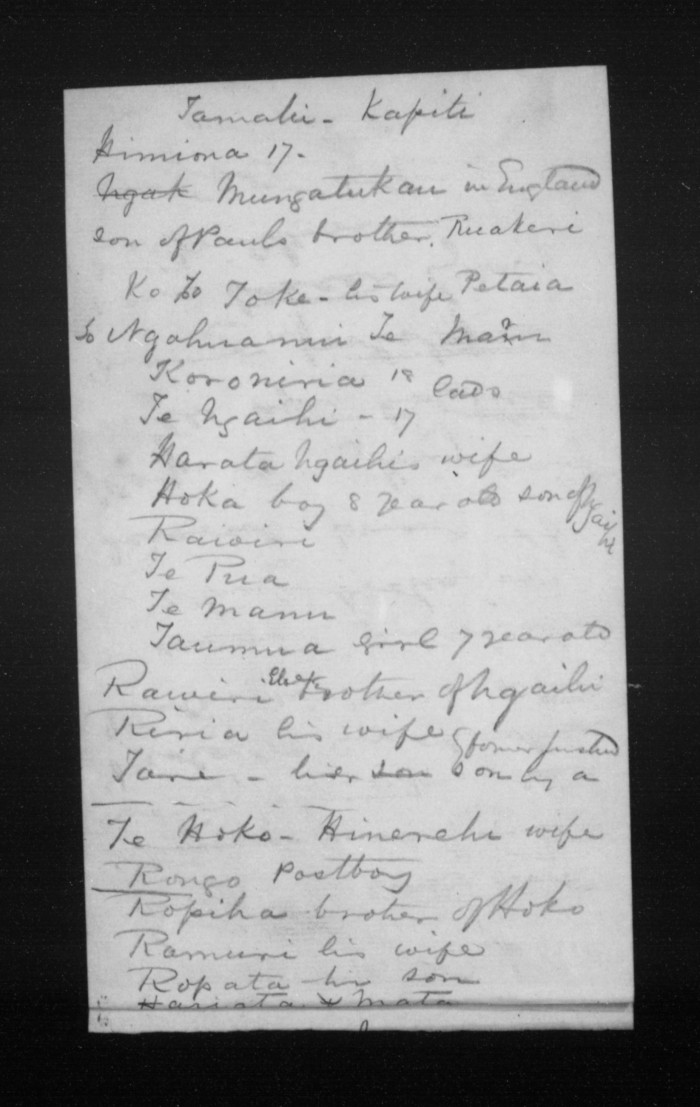 Tamaki - Kapiti
Himiona 17-
Ngak Mungatukau in England
son of Pauls brother. Ruakeri
Ko To Toke - his wife Petaia
Ngahuanui Te Manu
Koroniria 18 lads
Te Ngaihi - 17
Harata Ngaihis wife
Hoka boy 8 year old son of Ngaihi
Rawiri
Te Pua
Te Manu
Taumua girl 7 year old
Rawiri Elder brother of Ngaihi
Riria his wife
Taire - her son son by a former husband
Te Hoko - Hinerehe wife
Rongo Postboy
Ropiha brother of Hoko
Ramuri his wife
Ropata his son
Hariata & Mata